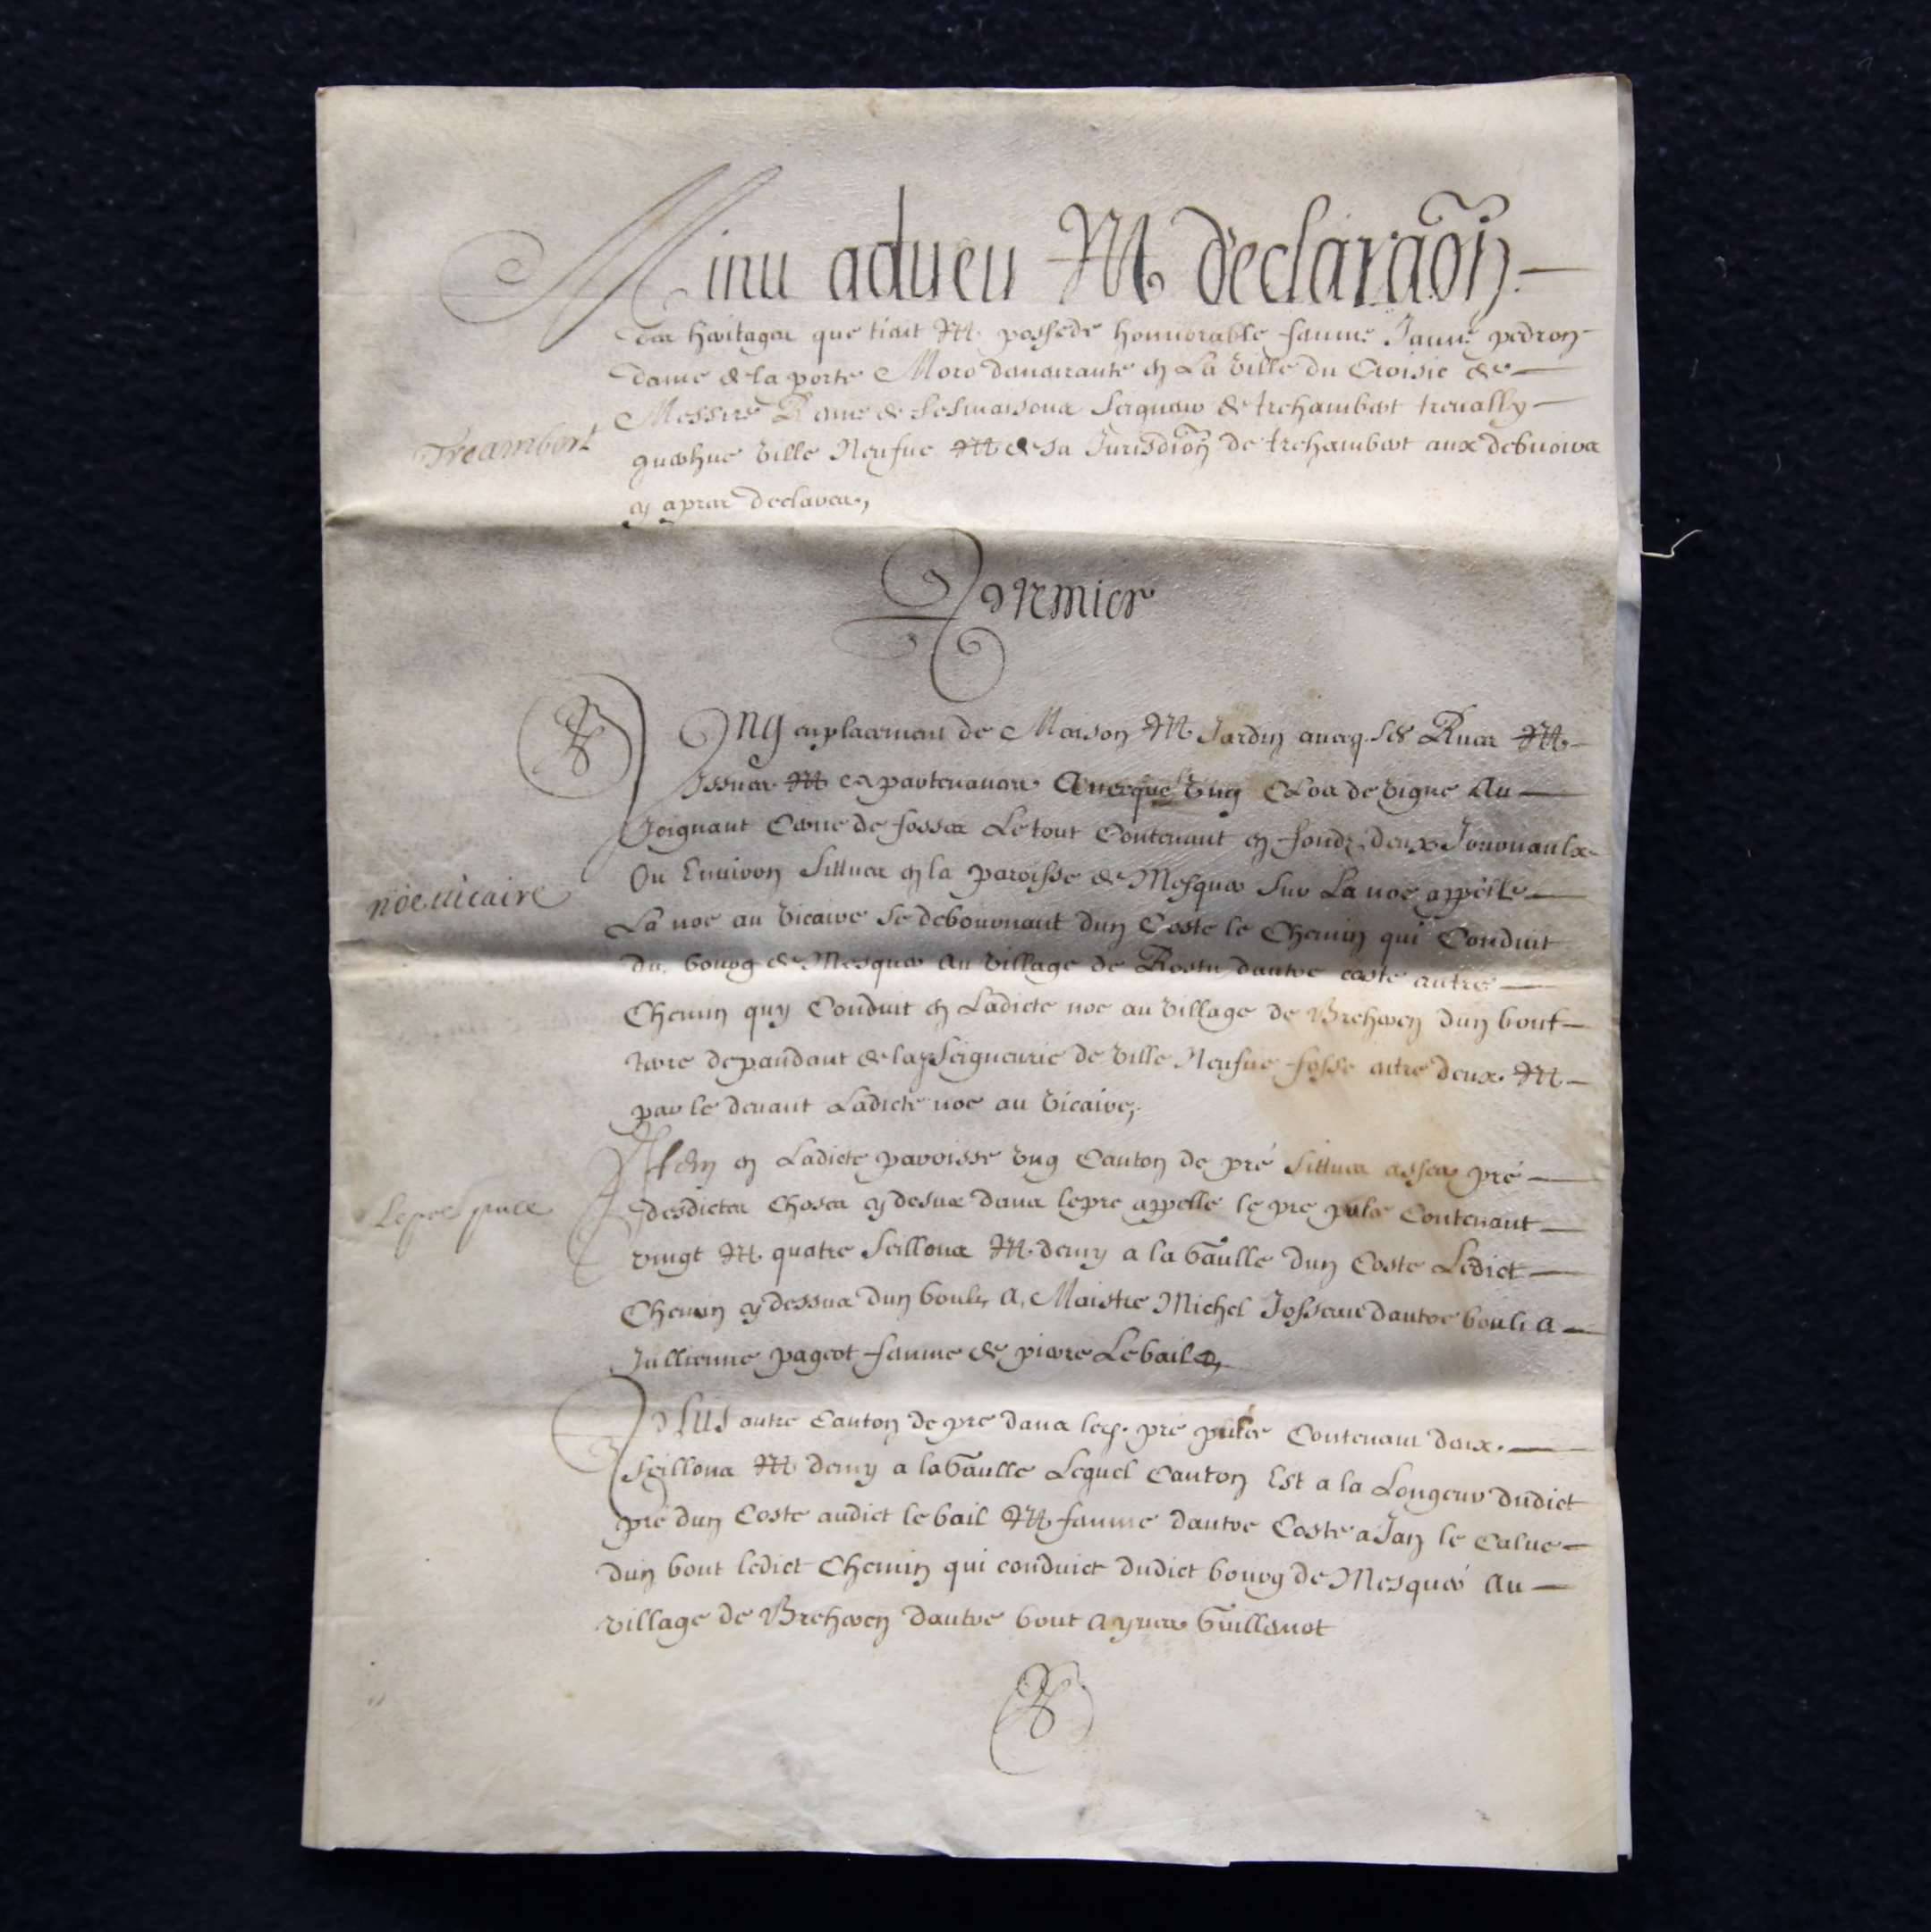 Minu adueu Et declaraõn
des heritages que tient Et possede honnorable femme Janne pedron
dame de la porte Moro demeurante en La Ville du Croisic de
Messire de Lesmaisons Seigneur de trehambert treually
Treambert
querhue Ville Neufue Et de sa Jurisdiõn de trehambert aux debuoirs
cy apres declares,
premier
Ung emplacement de Maison Et Jardin auecq ses Rues Et
Issues Et apartenances Auecque Vng Clos de vigne Au
Joignant Cerne de fosses Le tout Contenant en fondz deux Journaulx
Ou Enuiron Sittues en la paroisse de Mesquer Sur La noe appelle
noe uicaire
La noe au vicaire Se debournant dun Coste le Chemin qui Conduit
du bourg de Mesquer au Village de Rostu dautre coste autre
Chemin quy Conduit en Ladicte noe au Village de Breheren dun bout
terre depandant de la Seigneurie de Ville Neufue fosse entre deux Et
par le deuant Ladicte noe au Vicaire,
Item en Ladicte paroisse Vng Canton de pré Sittues asses pré
desdictes Choses cy desus dans le pre appelle le pre pules Contenant
Vingt Et quatre Seillons Et demy a la Gaulle dun Coste Ledict
Chemin cy dessus dun bout A Maistre Michel Josseau dautre bout A
Jullienne pageot femme de pierre Le bail,
plus autre Canton de pre dans led. pre pules Contenant deux
Seillons Et demy a la Gaulle Lequel Canton Est a la Longeur dudict
pre dun Coste audict le bail Et femme dautre Coste a Jan le Calue
dun bout ledict Chemin qui conduict dudict bourg de Mesquer Au
village de Breheren dautre bout A yues Guillemot